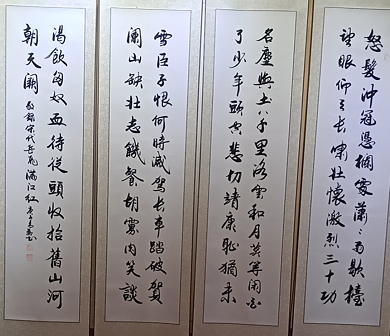 怒髮沖冠憑欄處瀟瀟雨歇擡
望眼仰天长嘯壯懷激烈三十功
名塵與土八千里路雲和月莫等閑白
了少年頭空悲切靖康恥猶未
雪臣子恨何時滅駕长車踏破賀
蘭山缺壯志饑餐胡虜肉笑談
渴飲匈奴血待從頭收拾舊山河
朝天闕 敬錄宋代岳飛滿江红